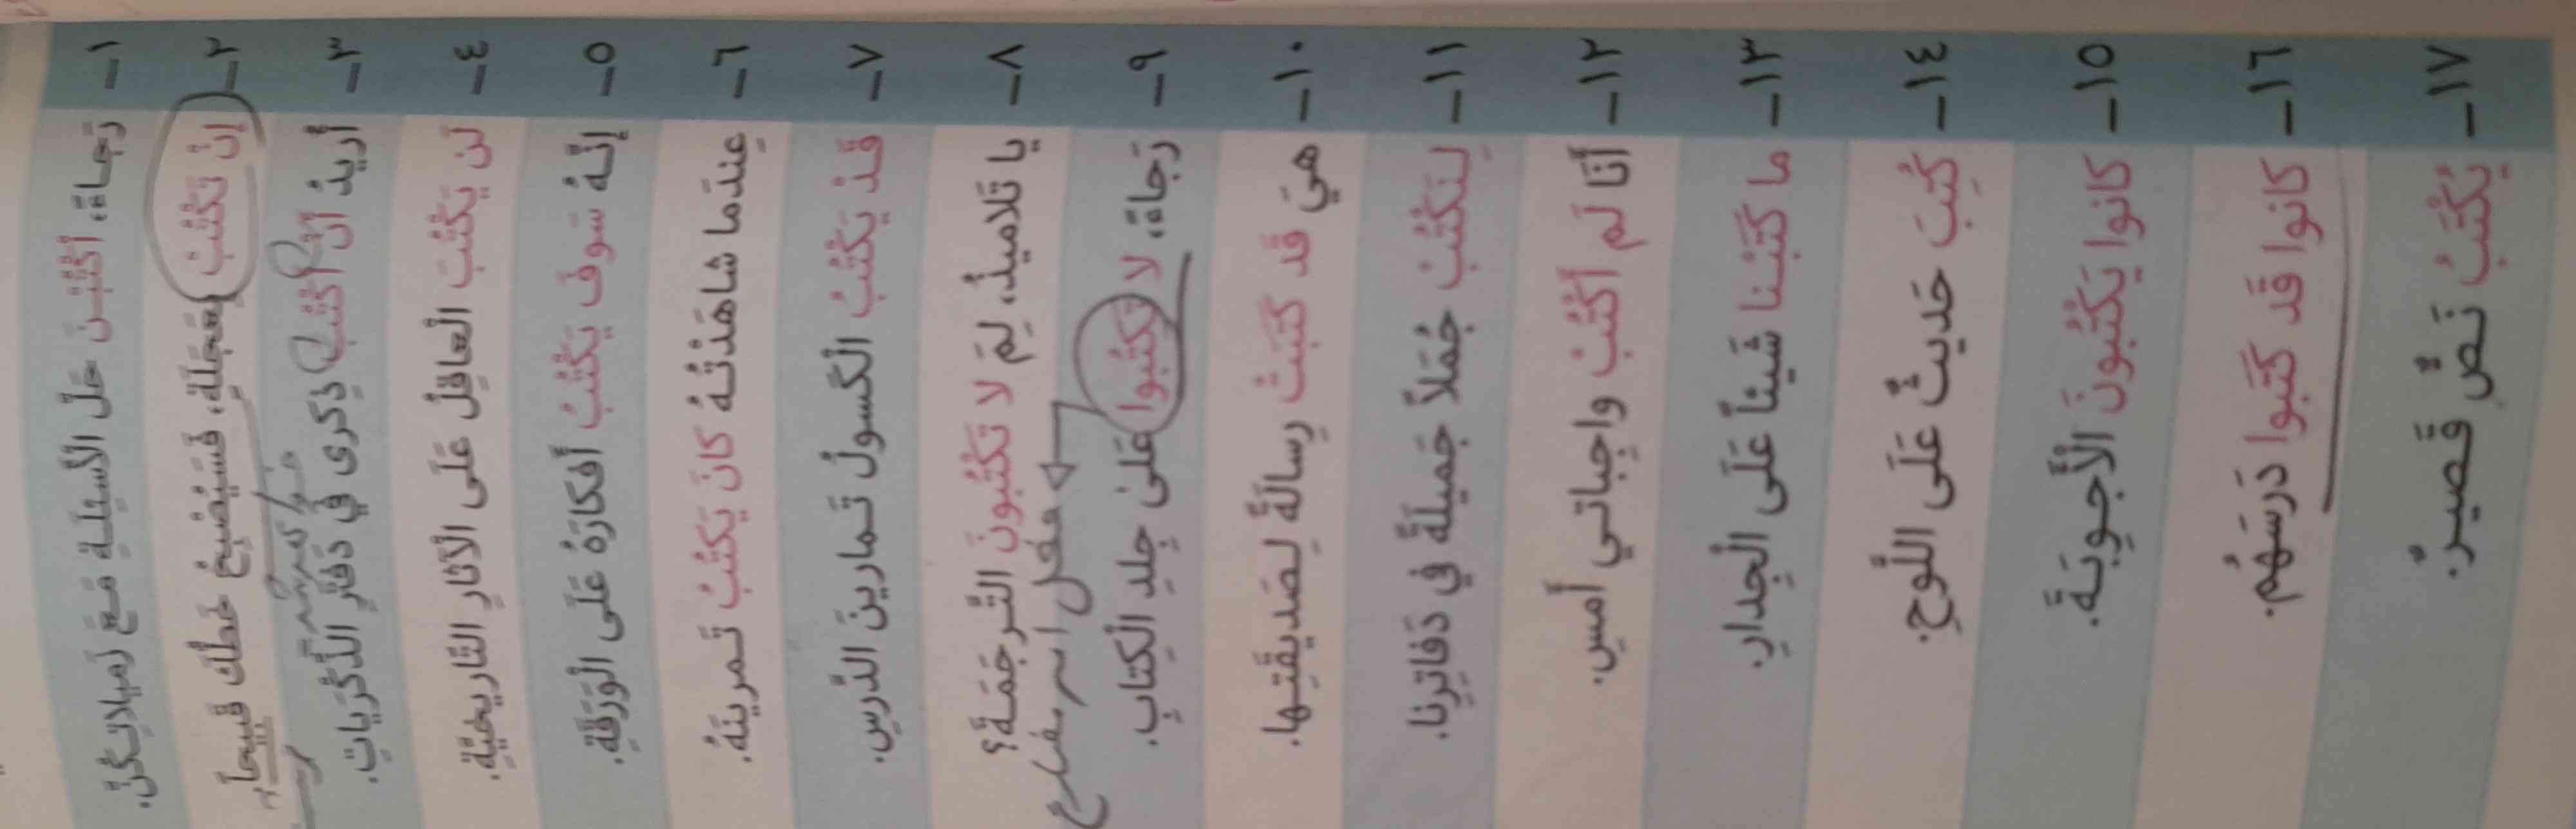 ١ـ رَجاءً، اُكْتُبْنَ حَلَّ الْأَسئِلَةِ مَعَ زَميلاتِكُنَّ.
٢ـ إنْ تَكْتُبْ بِعَجَلَةٍ، فَسَيُصْبِحُ خَطُّكَ قَبيحاً.
٣ـ أُريدُ أَنْ أَكْتُبَ ذِكرَى في دَفْتَرِ الذِّكْرَياتِ.
٤ـ لَن يَكْتُبَ الْعاقِلُ عَلَى الْآثارِ التّاريخيَّةِ.
٥ـ إنَّهُ سَوفَ يَكْتُبُ أَفكارَهُ عَلَى الْوَرَقَةِ.
٦ـ عِندَما شاهَدْتُهُ كانَ يَكْتُبُ تَمرينَهُ.
٧ـ قَدْ يَكْتُبُ الْكَسولُ تَمارينَ الدَّرسِ.
٨ـ يا تَلاميذُ، لِمَ لا تَكْتُبونَ التَّرجَمَةَ؟
فعل امر مضارع
٩ـ رَجاءً، لا تَكْتُبوا عَلىٰ جِلدِ الْكِتابِ.
١٠ـ هيَ قَد كَتَبَتْ رِسالَةً لِصَديقَتِها.
١١ـ لِنَكْتُبْ جُمَلاً جَميلَةً في دَفاتِرِنا.
١٢ـ أَنَا لَم أَكْتُبْ واجِباتي أَمسِ.
١٣ـ ما كَتَبْنا شَيئاً عَلَى الْجِدارِ.
١٤ـ كُتِبَ حَديثٌ عَلَى اللَّوحِ.
١٥ـ كانوا يَكْتُبونَ الْأَجوِبَةَ.
١٦ـ كانوا قَد كَتَبوا دَرسَهُم.
١٧ـ يُكْتَبُ نَصٌّ قَصيرٌ.